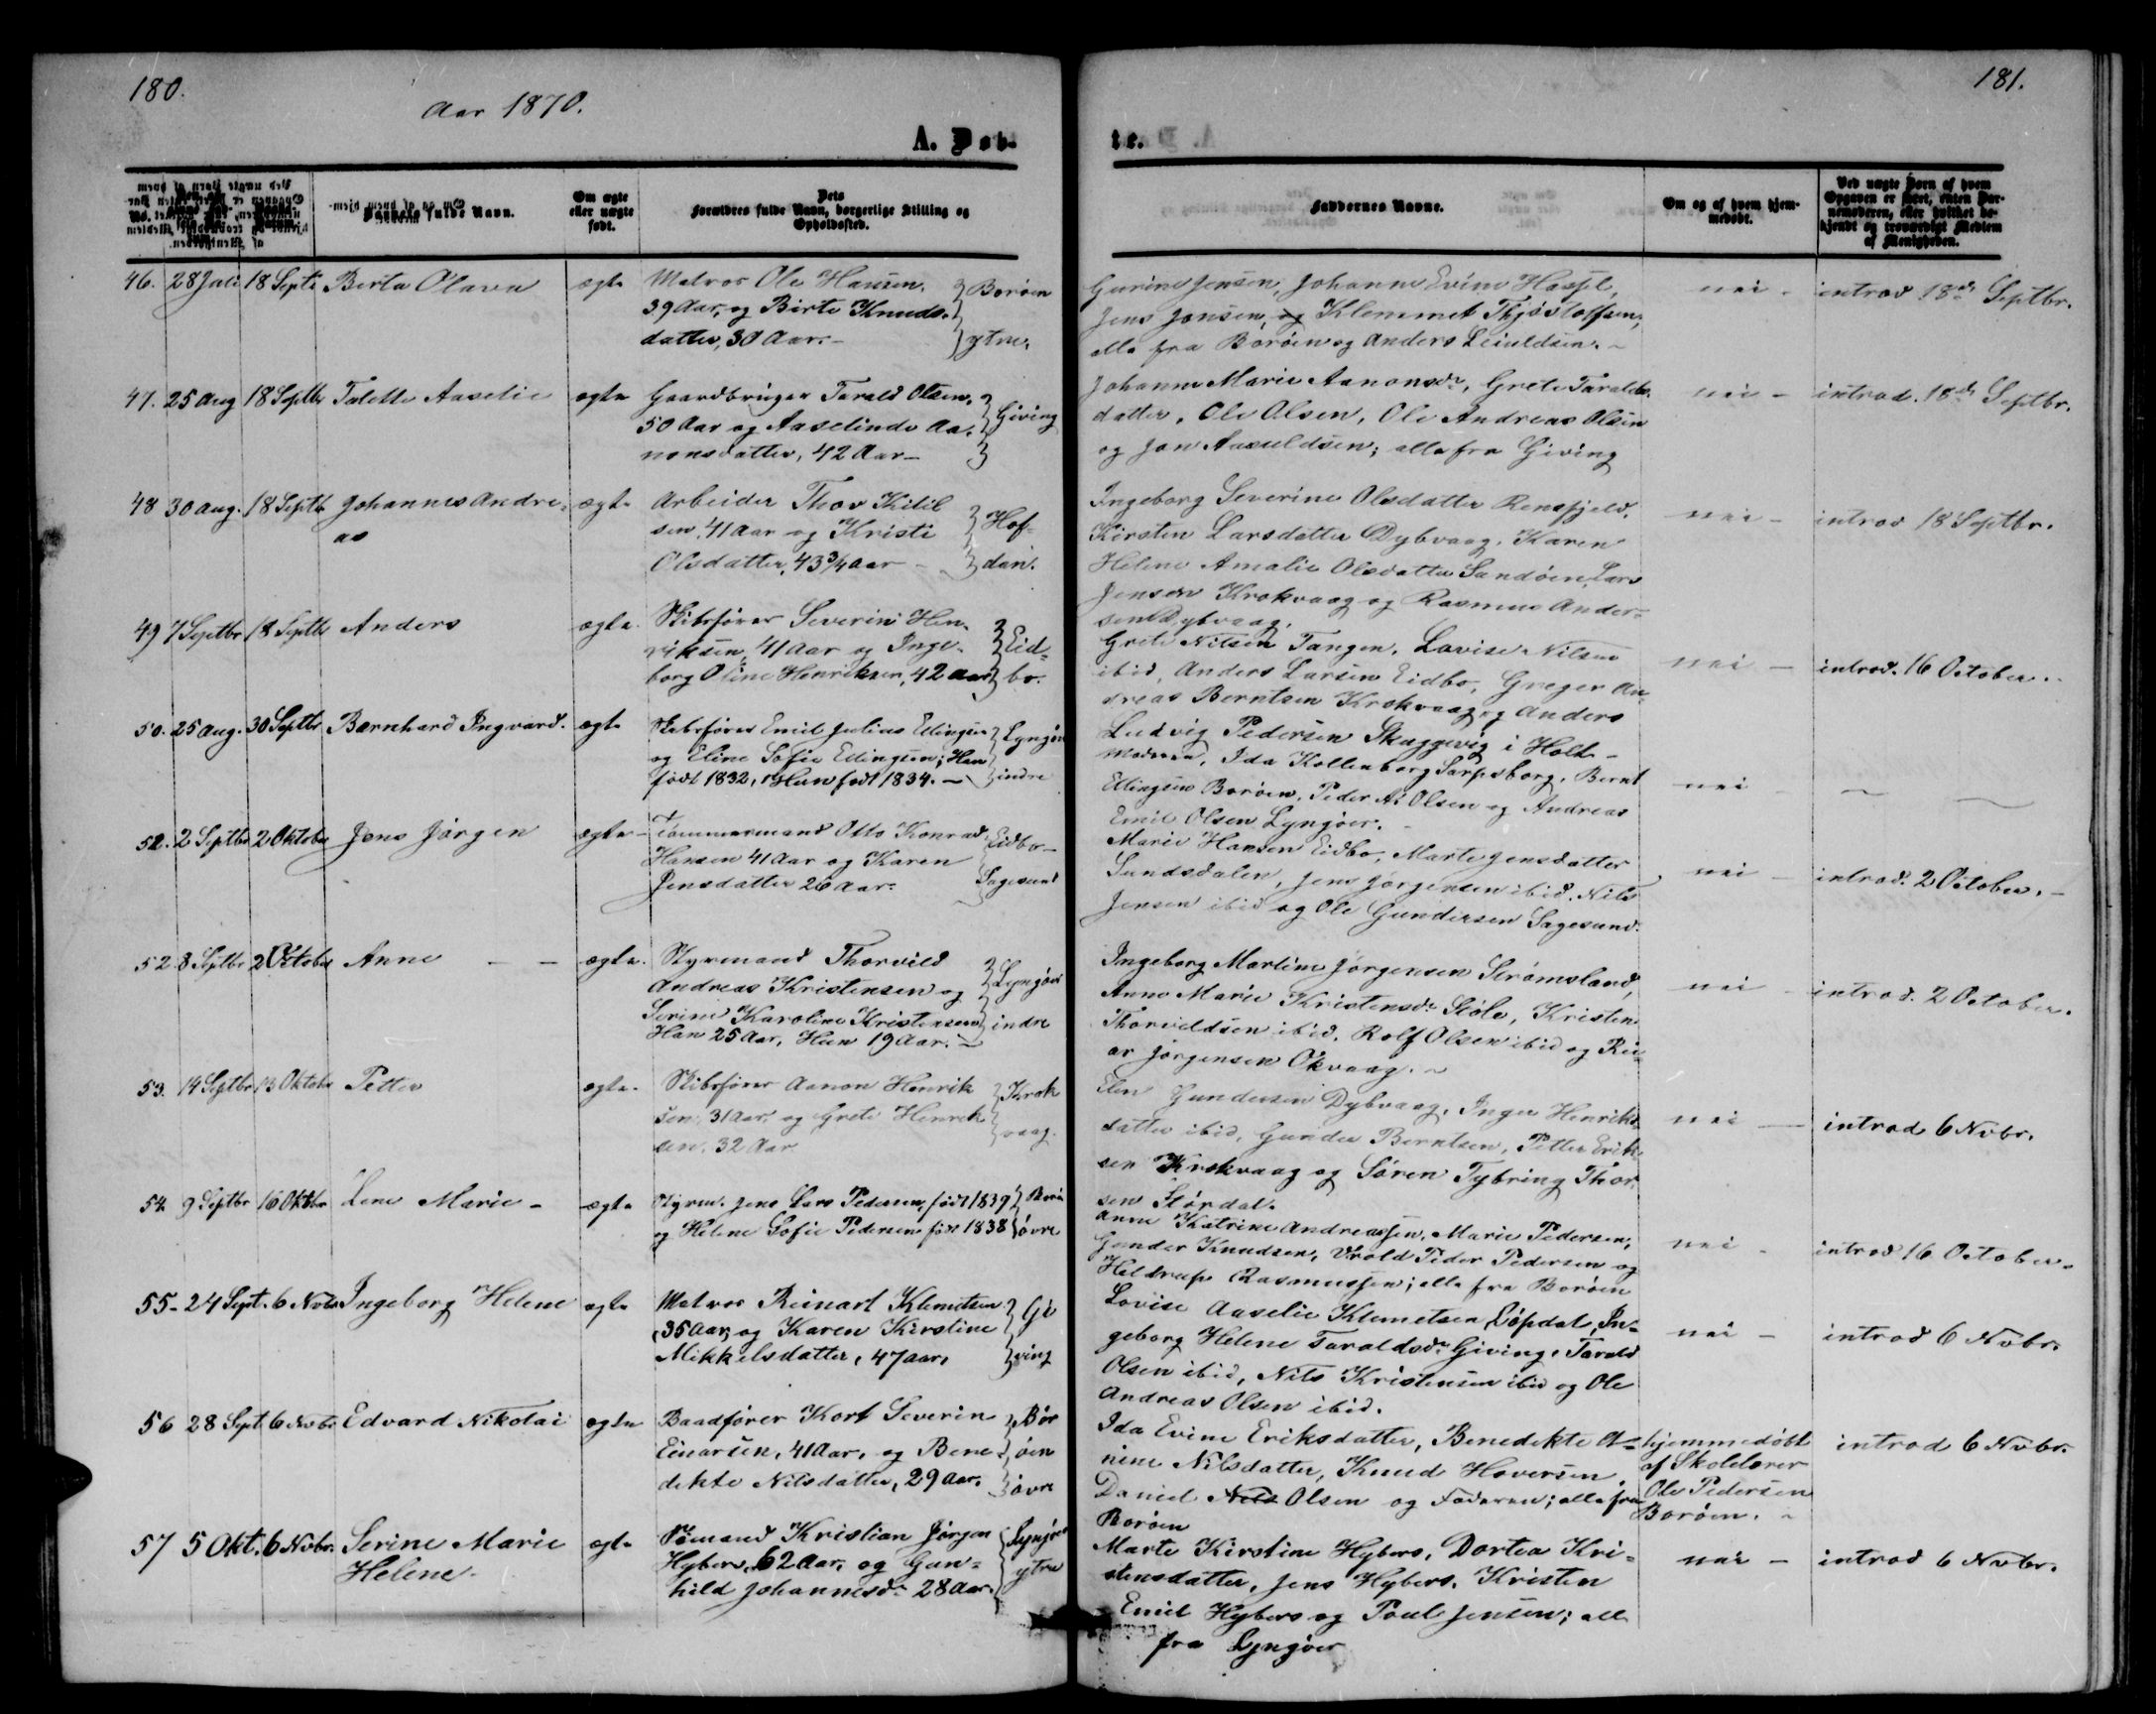 180.
Aar 1870.
A. Døb-
Barnets fulde Navn.
Om ægte eller uægte født.
Dets Forældres fulde Navn, borgerlige Stilling og Opholdssted.
46. 28 Juli 18 Sept. Berta Olava ægte Matros Ole Hansen,
39 Aar, og Birte Knuds- } Borøen
datter, 30 Aar. - } ytre.
47. 25 Aug 18 Septbr Talette Aaselie ægte Gaardbruger Tarald Olsen,
50 Aar og Aaselinde Aa- } Giving
nonsdatter, 42 Aar -
48 30 Aug. 18 Septb Johannes Andre- ægte Arbeider Thov Kitil
as sen, 41 Aar og Kristi } Hof-
Olsdatter, 43 3/4 Aar - } dan.
49 7 Septbr 18 Septbr Anders ægte. Skibsfører Severin Hen-
riksen, 41 Aar og Inge- } Eid-
borg Oline Henriksen, 42 Aar } bo.
50. 25 Aug. 30 Septbr Bernhard Ingvard. ægte Skibsfører Emil Julius Ellingsen } Lyngør
og Eline Sofie Ellingsen; Han
født 1832, Hun født 1834. - } indre
51. 2 Septbr 2 Oktober Jens Jørgen ægte - Tømmermand Otto Konrad Eidbo -
Hansen 41 Aar og Karen
Jensdatter 26 Aar. Sagesund
52. 8 Septbr 2 October Anne - - ægte. Styrmand Thorvild
Andreas Kristensen og } Lyngør
Serine Karoline Kristensen } indre
Han 25 Aar, Hun 19 Aar. -
53. 14 Septbr 13 Oktobr Petter ægte. Skibsfører Aanon Henrik } Krok
sen, 31 Aar, og Grete Henrik
sen, 32 Aar } vaag.
54. 9 Septbr 16 Oktbr Lene Marie - ægte Styrm. Jens Lars Pedersen, født 1839
og Helene Sofie Pedersen født 1838 } øvre
55- 24 Sept. 6 Nvbr Ingeborg Helene ægte Matros Reinart Klemetsen } Gi
35 Aar, og Karen Kirstine
Mikkelsdatter, 47 Aar, } ving
56 28 Sept. 6 Nvbr Edvard Nikolai ægte Baadfører Kort Severin } Bor
Einarsen, 41 Aar, og Bene- } øen
dikte Nilsdatter, 29 Aar. } øvre
57 5 Okt. 6 Nvbr. Serine Marie ægte Sømand Kristian Jørgen } Lyngør
Helene - Hybers, 62 Aar, og Gun- } ytre
hild Johannesdr 28 Aar.
181.
te.
Faddernes Navne.
Om og af hvem hjemmedøbt.
Ved uægte Børn af hvem Opgaven er skeet, enten Barnemoderen, eller hvilket bekjendt og troværdigt Medlem af Menigheden.
Gurine Jensen, Johanne Evine Hassel,
Jens Jonsen, og Klemmet Thjøstolfsen,
alle fra Borøen og Anders Leiuldsen. - nei - introd 18de Septbr.
Johanne Marie Aanonsdr, Grete Taralds-
datter, Ole Olsen, Ole Andreas Olsen
og Jon Aasuldsen; alle fra Giving nei - introd. 18de Septbr.
Ingeborg Severine Olsdatter Rensfjeld,
Kirsten Larsdatter Dybvaag, Karen
Helene Amalie Olsdatter Sandøen, Lars
Jensen Krokvaag og Rasmus Ander-
sen Dybvaag. nei - introd 18 Septbr.
Grete Nilsen Tangen, Lovise Nilsen
ibid, Anders Larsen Eidbo, Greger An-
dreas Berntsen Krokvaag og Anders
Ludvig Pedersen Skuggevig i Holt - nei - introd. 16 October.
Moderen, Ida Kollenborg Sarpsborg, Bernt
Ellingsen Borøen, Peder As Olsen og Andreas
Emil Olsen Lyngøer. - nei -
Marie Hansen Eidbo, Marte Jensdatter
Sundsdalen, Jens Jørgensen ibid. Nils
Jensen ibid og Ole Gundersen Sagesund. nei - introd. 2 October. -
Ingeborg Martine Jørgensen Strømsland,
Anne Marie Kristensdr Stole, Kristen
Thorvildsen ibid, Rolf Olsen ibid og Rei-
ar Jørgensen Okvaag. - nei - introd. 2 October.
Elen Gundersen Dybvaag, Inger Henriks
datter ibid, Gunder Berntsen, Petter Erik-
sen Krokvaag og Søren Tybring Thor
sen Størdal. nei - introd 6 Nvbr.
Anne Katrine Andreassen, Marie Pedersen,
Gunder Knudsen, Vrold Peder Pedersen og
Heldrup Rasmussen; alle fra Borøen nei - introd 16 October.
Lovise Aaselie Klemetsen Løpdal, In-
geborg Helene Taraldsdr Giving, Tarald
Olsen ibid, Nils Kristensen ibid og Ole
Andreas Olsen ibid. nei - introd 6 Nvbr.
Ida Evine Eriksdatter, Benedikte A- hjemmedøbt introd 6 Nvbr.
nine Nilsdatter, Knud Haversen, af Skolelærer
Daniel Nils Olsen og Faderen; alle fra Ole Pedersen
Borøen Borøen. -
Marte Kirstine Hybers, Dortea Kri-
stensdatter, Jens Hybers, Kristen
Emil Hybers og Poul Jensen; alle
fra Lyngøer nei - introd 6 Nvbr.